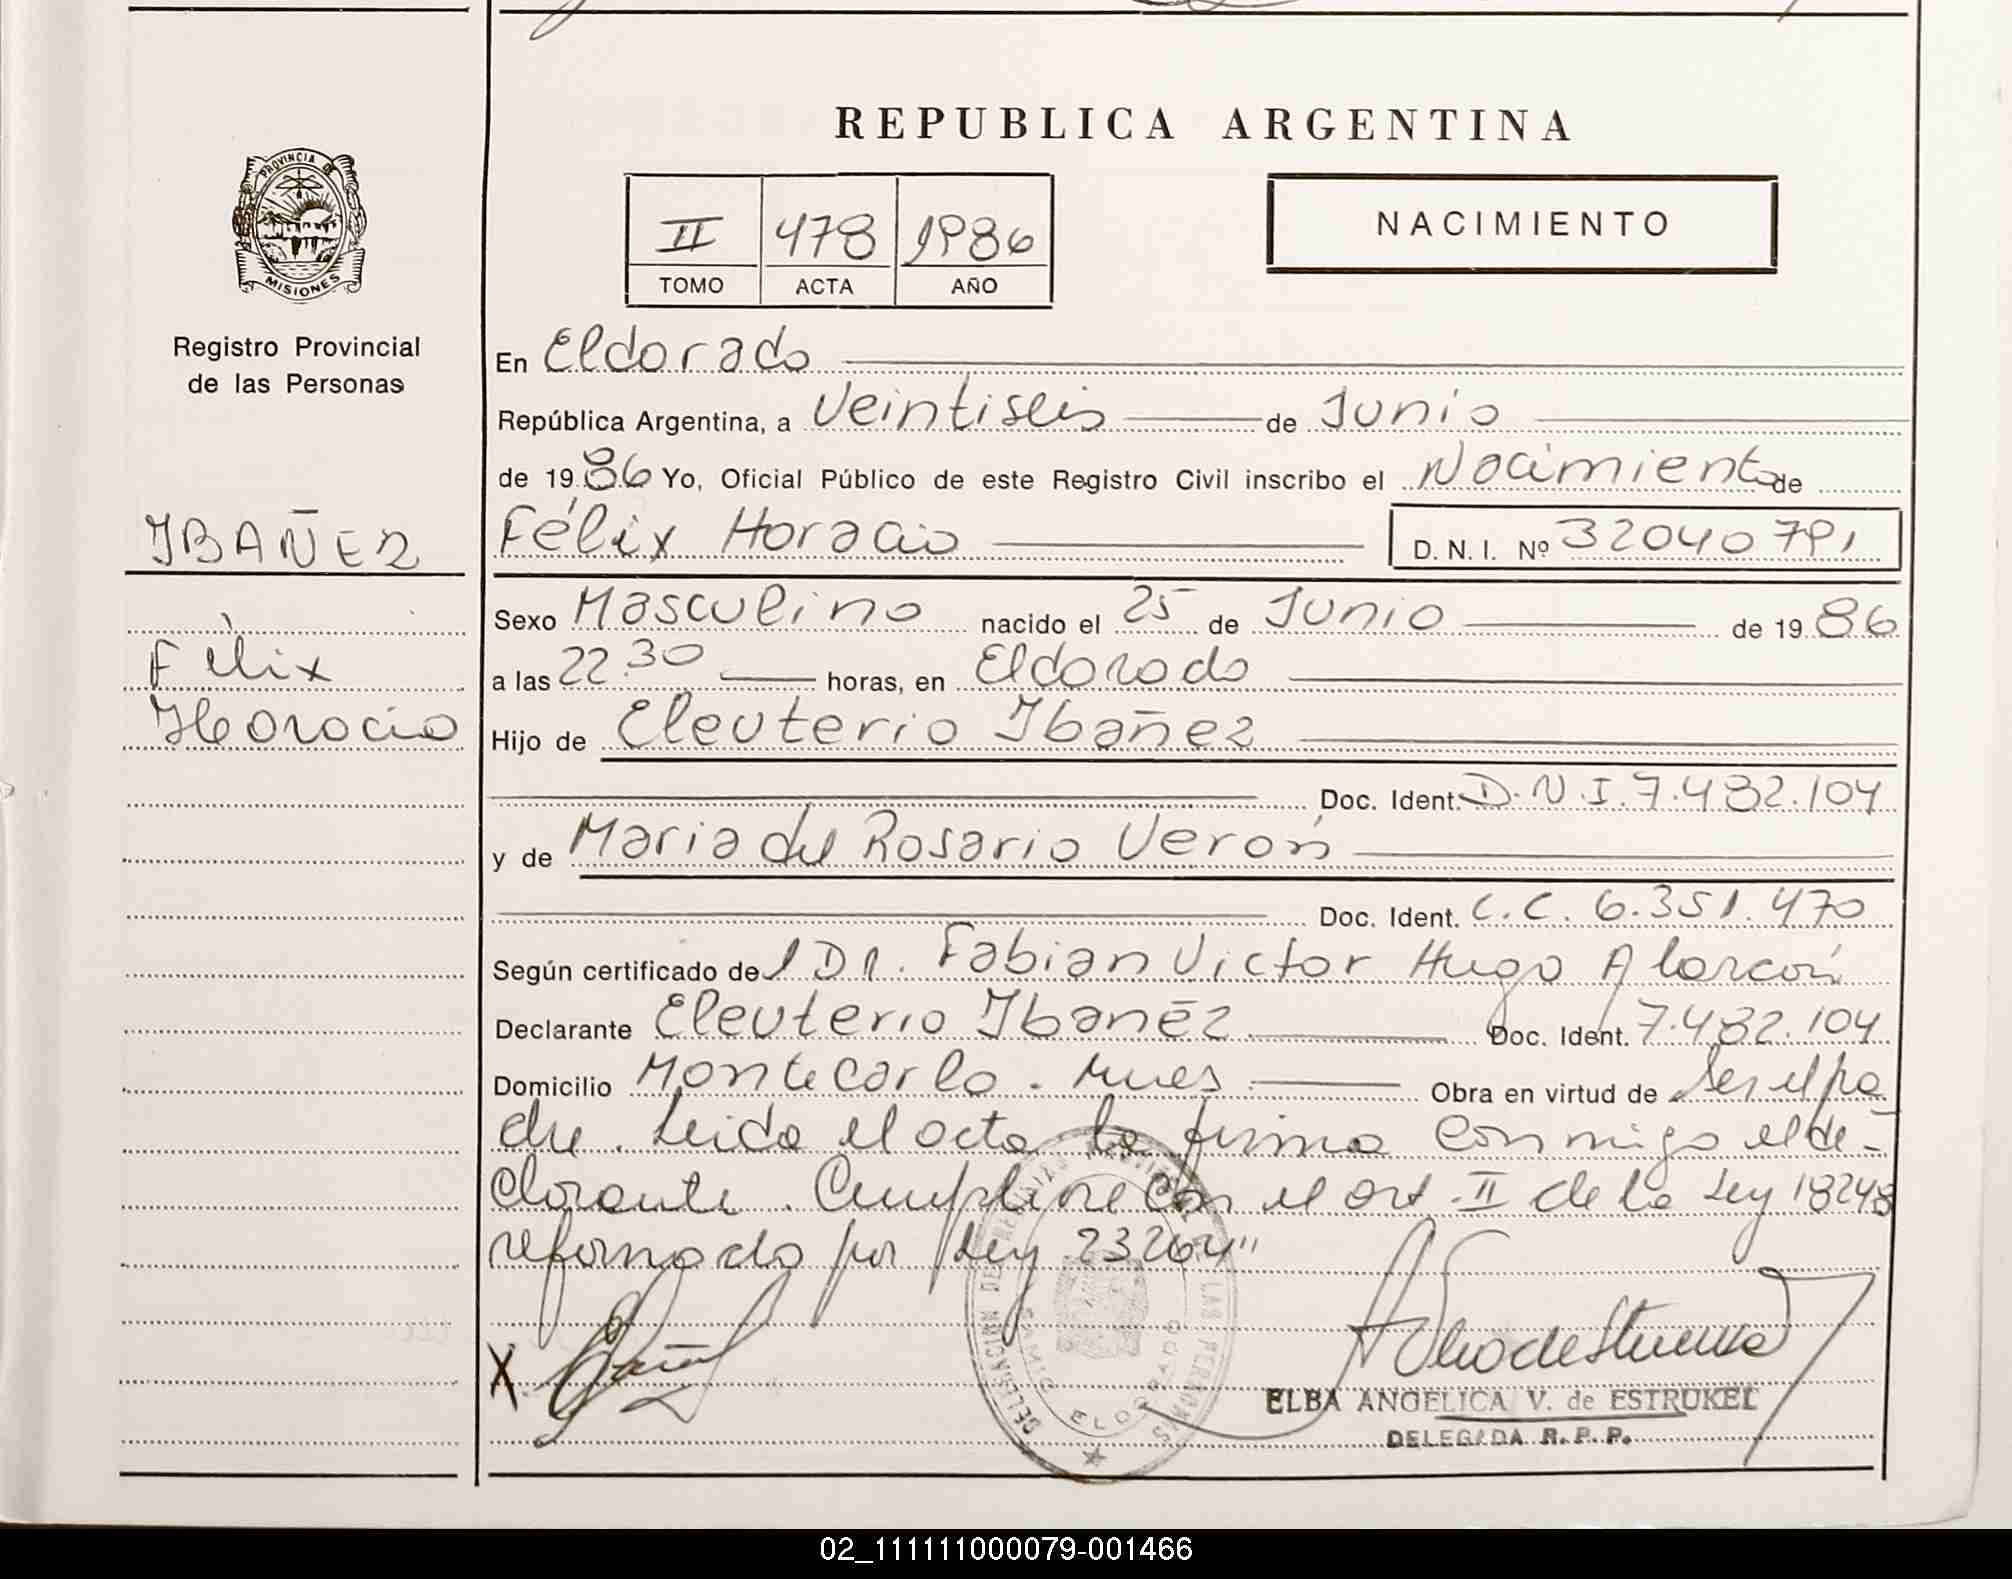 REPUBLICA ARGENTINA
PROVINCIA DE
MISIONES
Registro Provincial
de las Personas
II 478 1986
TOMO ACTA AÑO
NACIMIENTO
En Eldorado
República Argentina, a Veintiseis de Junio
de 1986 Yo, Oficial Público de este Registro Civil inscribo el Nacimiento de
IBAÑEZ
Félix Horacio D. N. I. Nº 32040791
Sexo Masculino nacido el 25 de Junio de 1986
Félix
a las 22.30 horas, en Eldorado
Horacio
Hijo de Eleuterio Ibañez
Doc. Ident. D.N.I. 7.482.104
y de Maria del Rosario Verón
Doc. Ident. C.C. 6.351.470
Según certificado del Dr. Fabian Victor Hugo Alarcón
Declarante Eleuterio Ibañez Doc. Ident. 7.482.104
Domicilio Montecarlo. Mnes Obra en virtud de Ser el pa
dre. Leida el acta la firma conmigo el de-
clarante. Cumplire con el art. II de la Ley 18248
reformado por Ley 23264"
X
DELEGACION DE REGISTRO PROVINCIAL DE LAS PERSONAS
ELDORADO
ELBA ANGELICA V. de ESTRUKEL
DELEGADA R. P. P.
02_111111000079-001466